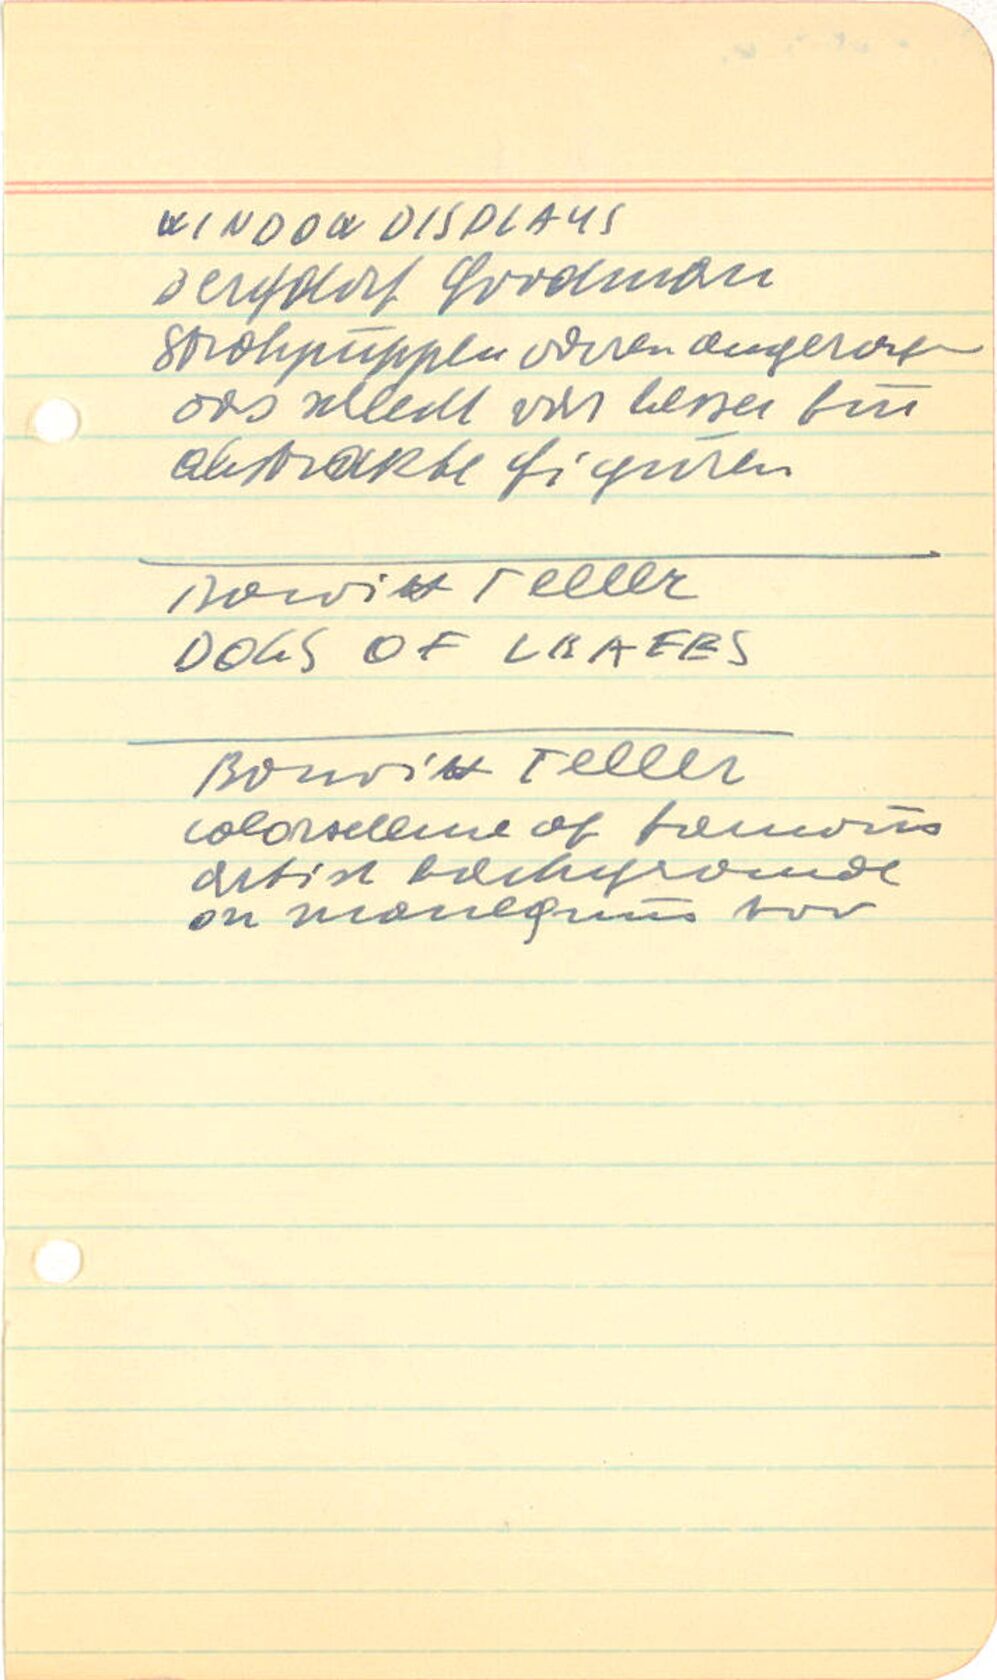 WINDOW DISPLAYS
Bergdorf Goodman
Strohpuppen waren
das schlecht war besser für
abstrakte figuren
Bonwitt Teller
DOGS OF LEAFES
Bonwitt Teller
colorscheme of famous
artist background
on manequins too